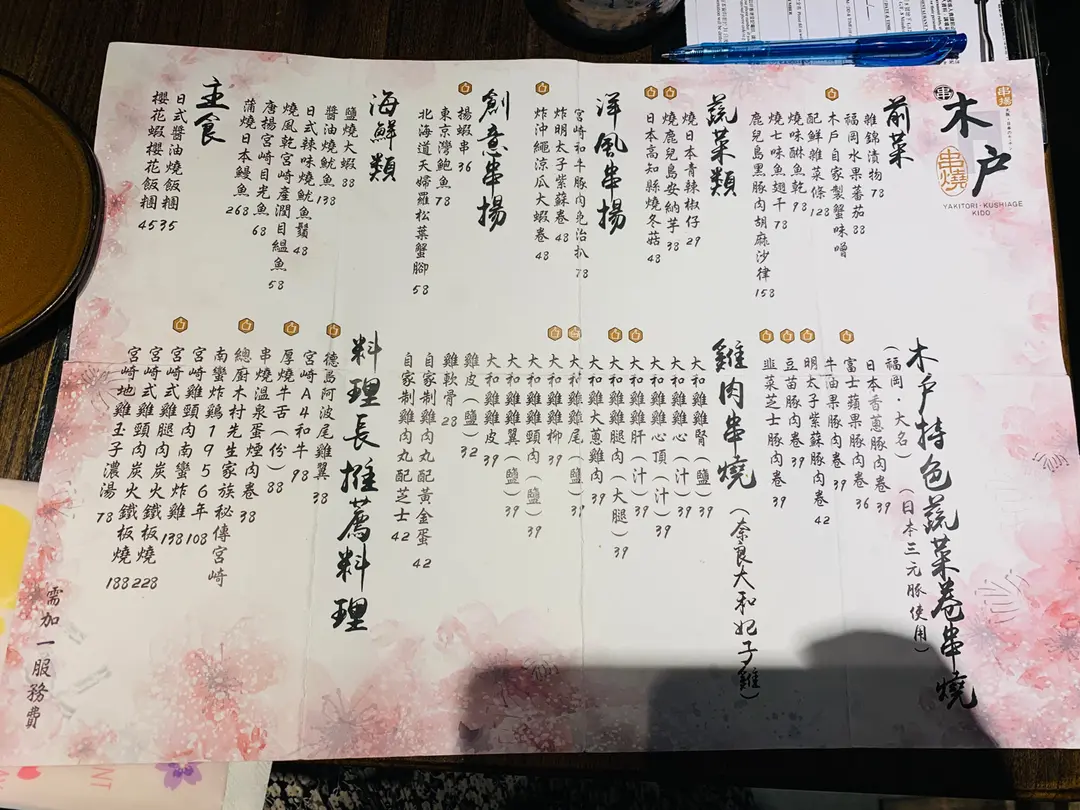 木戶
串燒
串揚
YAKITORI・KUSHIAGE
KIDO
前菜
雜錦漬物 78
福岡水果蕃茄 88
木戶自家製蟹味噌
配鮮雜菜條 128
燒味醂魚乾 98
燒七味魚翅干 78
鹿兒島黑豚肉胡麻沙律 158
蔬菜類
燒日本青辣椒仔 29
燒鹿兒島安納芋 38
日本高知縣燒冬菇 48
洋風串揚
宮崎和牛豚肉免治扒 78
炸明太子紫蘇卷 48
炸沖繩涼瓜大蝦卷 48
創意串揚
揚蝦串 36
東京灣鮑魚 78
北海道天婦羅松葉蟹腳 58
海鮮類
鹽燒大蝦 88
醬油燒魷魚 138
日式辣味燒魷魚鬚 48
燒風乾宮崎產潤目鰮魚 58
唐揚宮崎目光魚 68
蒲燒日本鰻魚 268
主食
日式醬油燒飯糰 35
櫻花蝦櫻花飯糰 45
木戶特色蔬菜卷串燒
(福岡・大名) (日本三元豚使用)
日本香蔥豚肉卷 39
富士蘋果豚肉卷 36
牛油果豚肉卷 39
明太子紫蘇豚肉卷 42
豆苗豚肉卷 39
韮菜芝士豚肉卷 39
雞肉串燒 (奈良大和妃子雞)
大和雞雞腎(鹽) 39
大和雞雞心(汁) 39
大和雞雞心頂(汁) 39
大和雞雞肝(汁) 39
大和雞雞腿肉(大腿) 39
大和雞大蔥雞肉 39
大和雞雞尾(鹽) 39
大和雞雞柳 39
大和雞雞頸肉(鹽) 39
大和雞雞翼(鹽) 39
大和雞雞皮 39
雞皮(鹽) 32
雞軟骨 28
自家制雞肉丸配黃金蛋 42
自家制雞肉丸配芝士 42
料理長推薦料理
德島阿波尾雞翼 38
宮崎A4和牛 98
厚燒牛舌(份) 88
串燒溫泉蛋煙肉卷 38
總廚木村先生家族秘傳宮崎
南蠻炸鷄1956年 108
宮崎雞頸肉南蠻炸雞 138
宮崎式雞腿肉炭火鐵板燒 228
宮崎式雞頸肉炭火鐵板燒 188
宮崎地雞玉子濃湯 78
需加一服務費